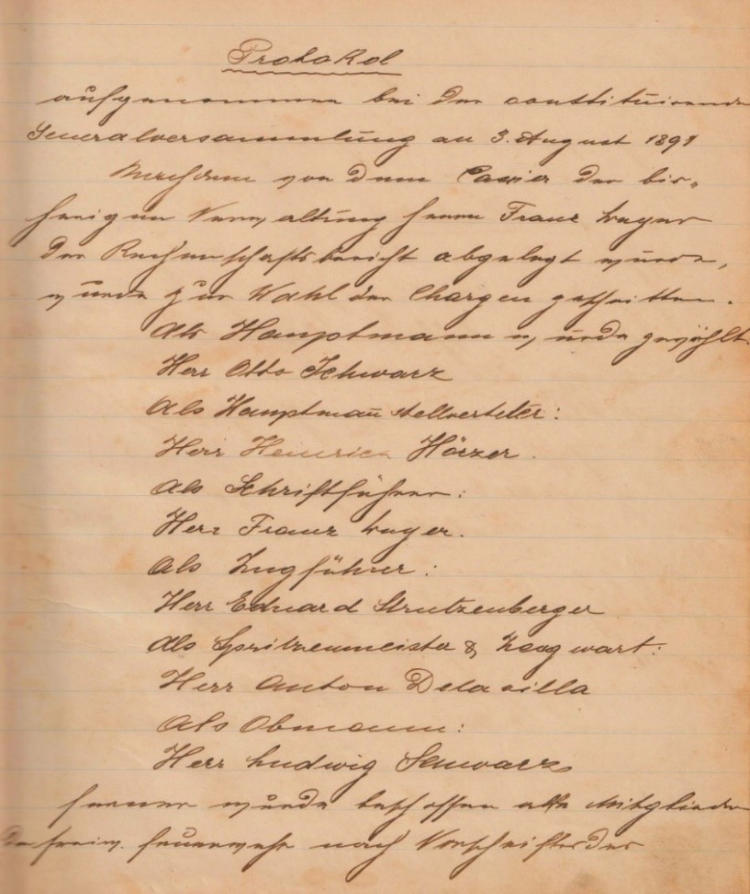 Protokol
aufgenommen bei der constituirenden
Generalversammlung am 3. August 1891
Nachdem von dem Cassier der bis-
herigen Verwaltung Herrn Franz Luger
der Rechenschaftsbericht abgelegt wurde,
wurde zur Wahl der Chargen geschritten.
Als Hauptmann wurde gewählt
Herr Otto Schwarz
Als Hauptmañ stellverteter:
Herr Heinrich Hörzer.
Als Schriftführer:
Herr Franz Luger.
Als Zugführer:
Herr Eduard Strutzenberger
Als Spritzenmeister & Zeugwart:
Herr Anton Delavilla
Als Obmann:
Herr Ludwig Schwarz
Ferner wurde beschlossen alle Mitglieder
der freiw. Feuerwehr nach Vorschrift der